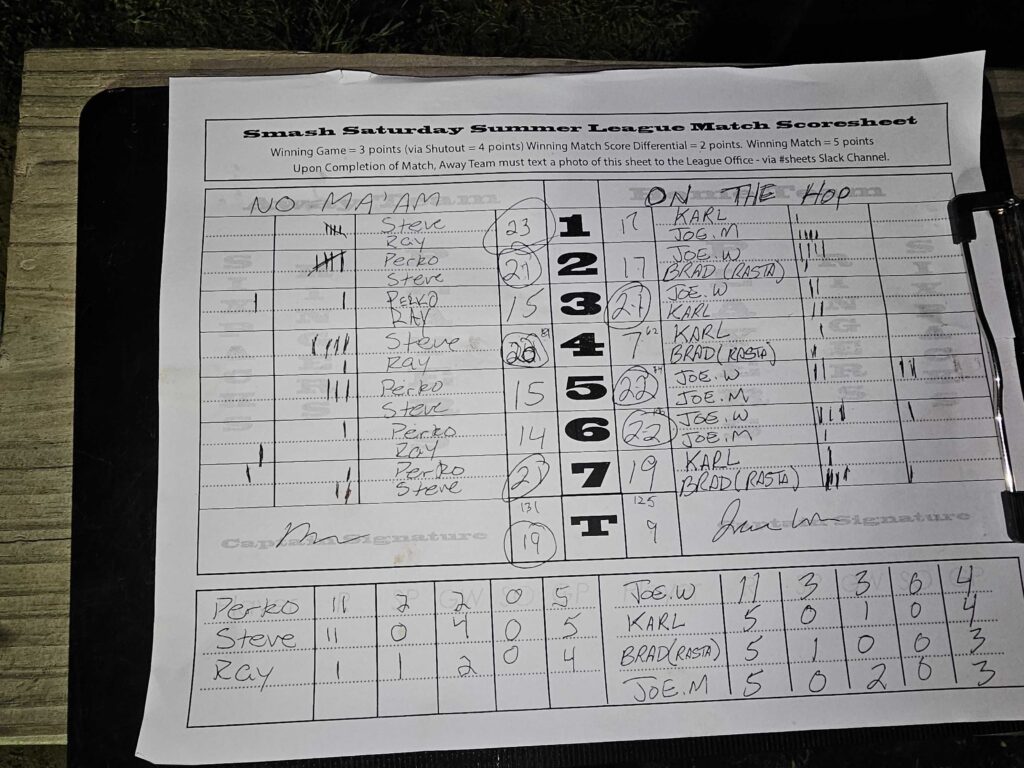 Smash Saturday Summer League Match Scoresheet
Winning Game = 3 points (via Shutout = 4 points) Winning Match Score Differential = 2 points. Winning Match = 5 points
Upon Completion of Match, Away Team must text a photo of this sheet to the League Office - via #sheets Slack Channel.
NO MA'AM ON THE HOP
Steve 23 1 17 KARL
Ray JOE.M
Perko 21 2 17 JOE.W
Steve BRAD(RASTA)
PERKO 15 3 21 JOE.W
RAY KARL
Steve 4 7 62 KARL
Ray BRAD(RASTA)
Perko 15 5 22 JOE.W
Steve JOE.M
Perko 14 6 22 JOE.W
Ray JOE.M
Perko 7 19 KARL
Steve BRAD(RASTA)
131 T 125
19 9
Captain Signature Captain Signature
Perko 11 2 2 0 5 JOE.W 11 3 3 0 4
Steve 11 0 4 0 5 KARL 5 0 1 0 4
Ray 1 1 2 0 4 BRAD(RASTA) 5 1 0 0 3
JOE.M 5 0 2 0 3